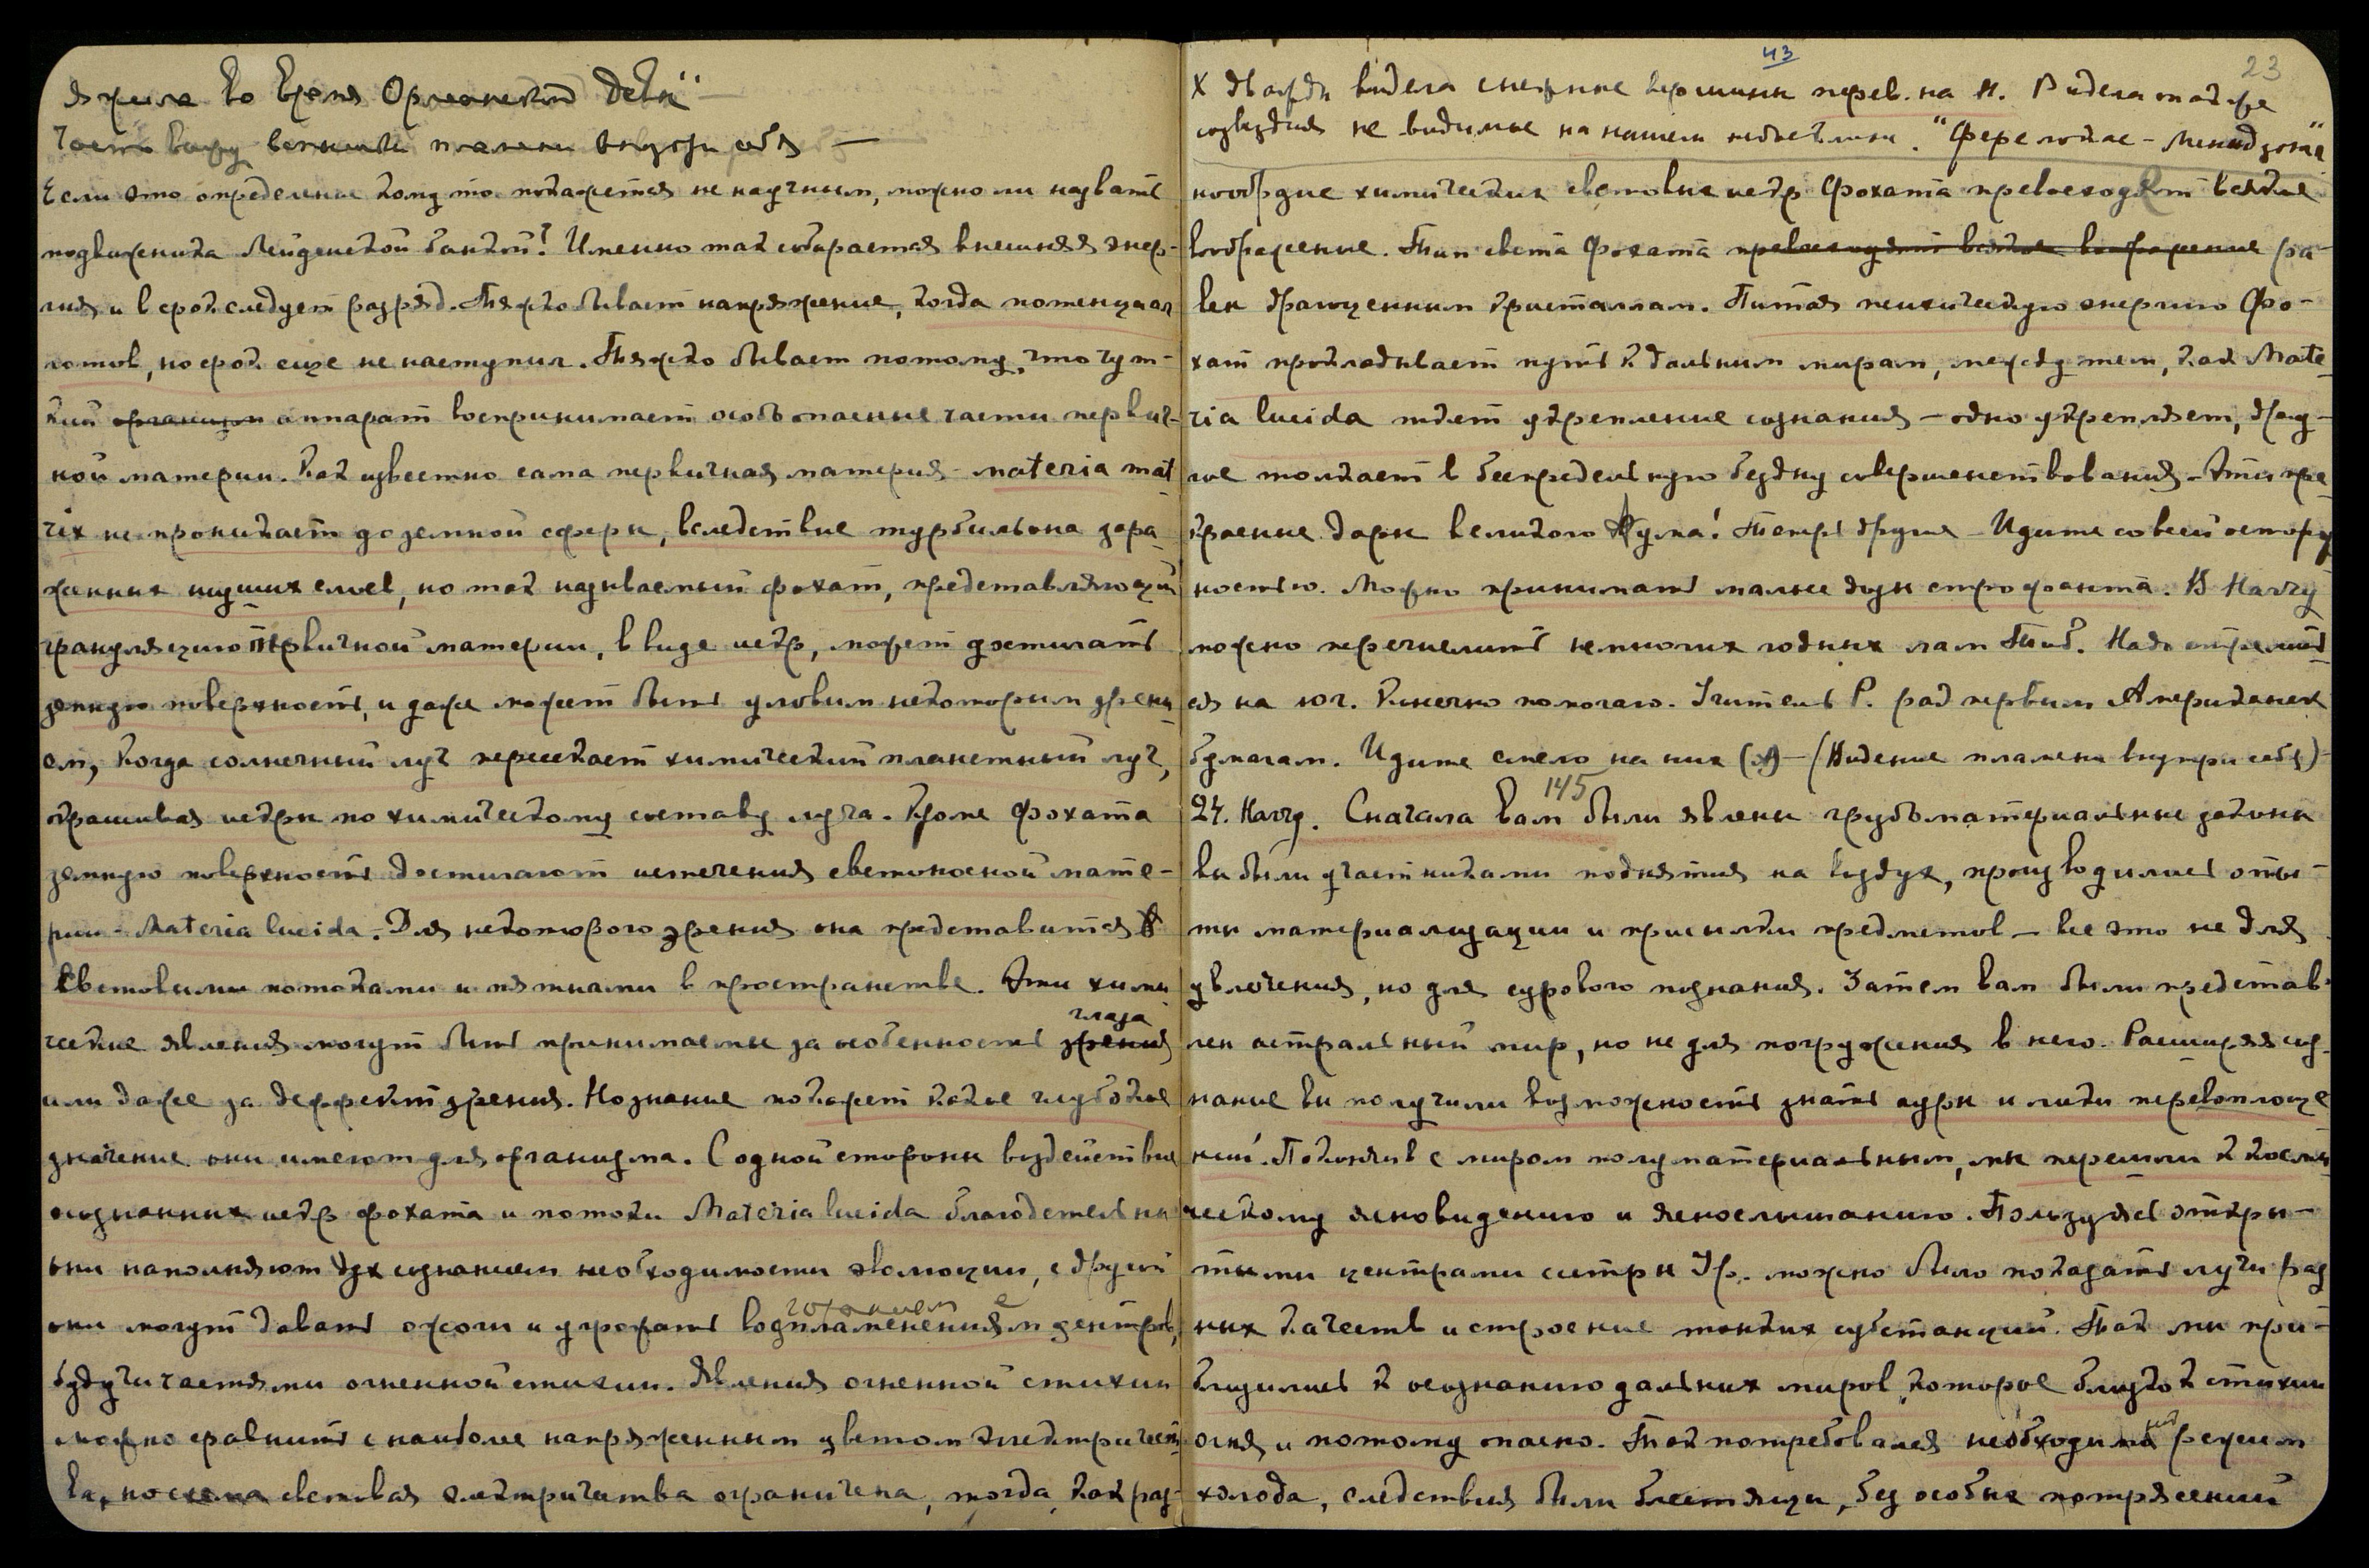 я жила во время Орлеанской Девы" —
Часто вижу вспышки пламени внутри себя —
Если это определение кому то покажется не научным, можно ли назвать
подвижника Лейденской банкой? Именно так собирается внешняя энер-
гия и в срок следует разряд. Тяжко бывает напряжение, когда потенциал
готов, но срок еще не наступил. Тяжко бывает потому, что чут-
кий организм аппарат воспринимает особо опасные части первич-
ной материи. Как известно сама первичная материя - materia mat
rix не проникает до земной сферы, вследствие турбильона зара-
женных низших слоев, но так называемый фохат, представляющий
грануляцию первичной материи, в виде искр, может достигать
земную поверхность, и даже может быть уловим некоторым зрени-
ем, когда солнечный луч пересекает химический планетный луч,
окрашивая искры по химическому составу луча. Кроме Фохата
земную поверхность достигают истечения светоносной мате-
рии - Materia lucida. Для некоторого зрения она представится
световыми потоками и пятнами в пространстве. Эти хими
ческие явления могут быть принимаемы за особенность зрения глаза
или даже за деффект зрения. Но знание покажет какое глубокое
значение они имеют для организма. С одной стороны воздействие
осознанных искр фохата и потоки Materia lucida благодетельны
они наполняют дух сознанием необходимости эволюции, с другой
они могут давать ожоги и угрожать воспламенением центров,
будучи частями огненной стихии. Явления огненной стихии
можно сравнить с наиболее напряженным цветом электричест
ва, но схема световая электричества ограничена, тогда как раз-
43
23
X Дважды видела снежные вершины перев. на Н. Видела также
созвездия не видимые на нашем небосклоне.
нообразие химических световых искр Фохата превосходят всякое
воображение. Тип света Фохата превосходят всякое воображение ра-
вен драгоценным кристаллам. Питая психическую энергию Фо-
хат прокладывает путь к дальним мирам, между тем, как Mate
ria lucida ткет укрепление сознания - одно укрепляет, дру-
гое толкает в беспредельную бездну совершенствования. Эти пре
красные дары великого Аума! Теперь другое - Идите со всей осторож
ностью. Можно принимать малые дозы строфанта. В Narzy
можно перечислить немногих годных лам Тиб. Надо стремить
ся на юг. Конечно помогаю. Учитель Р. рад первым Американск
бумагам. Идите смело на них (X) - (Видение пламени внутри себя) -
145
24. Narzy. Сначала вам были явлены грубо материальные законы
вы были участниками поднятия на воздух, производились опы-
ты материализации и присылки предметов - все это не для
увлечения, но для сурового познания. Затем вам были представ-
лен астральный мир, но не для погружения в него. Расширяя соз-
нание вы получили возможность знать ауры и лики перевоплоще
ний. Покончив с миром полуматериальным, мы перешли к косми
ческому ясновидению и яснослышанию. Пользуясь откры-
тыми центрами сестры Ур. можно было показать лучи раз
ных качеств и строение тонких субстанций. Так мы при-
близились к осознанию дальних миров, которое близко к стихии
огня и потому опасно. Так потребовался необходимый режим
холода, следствия были блестящи, без особых потрясений